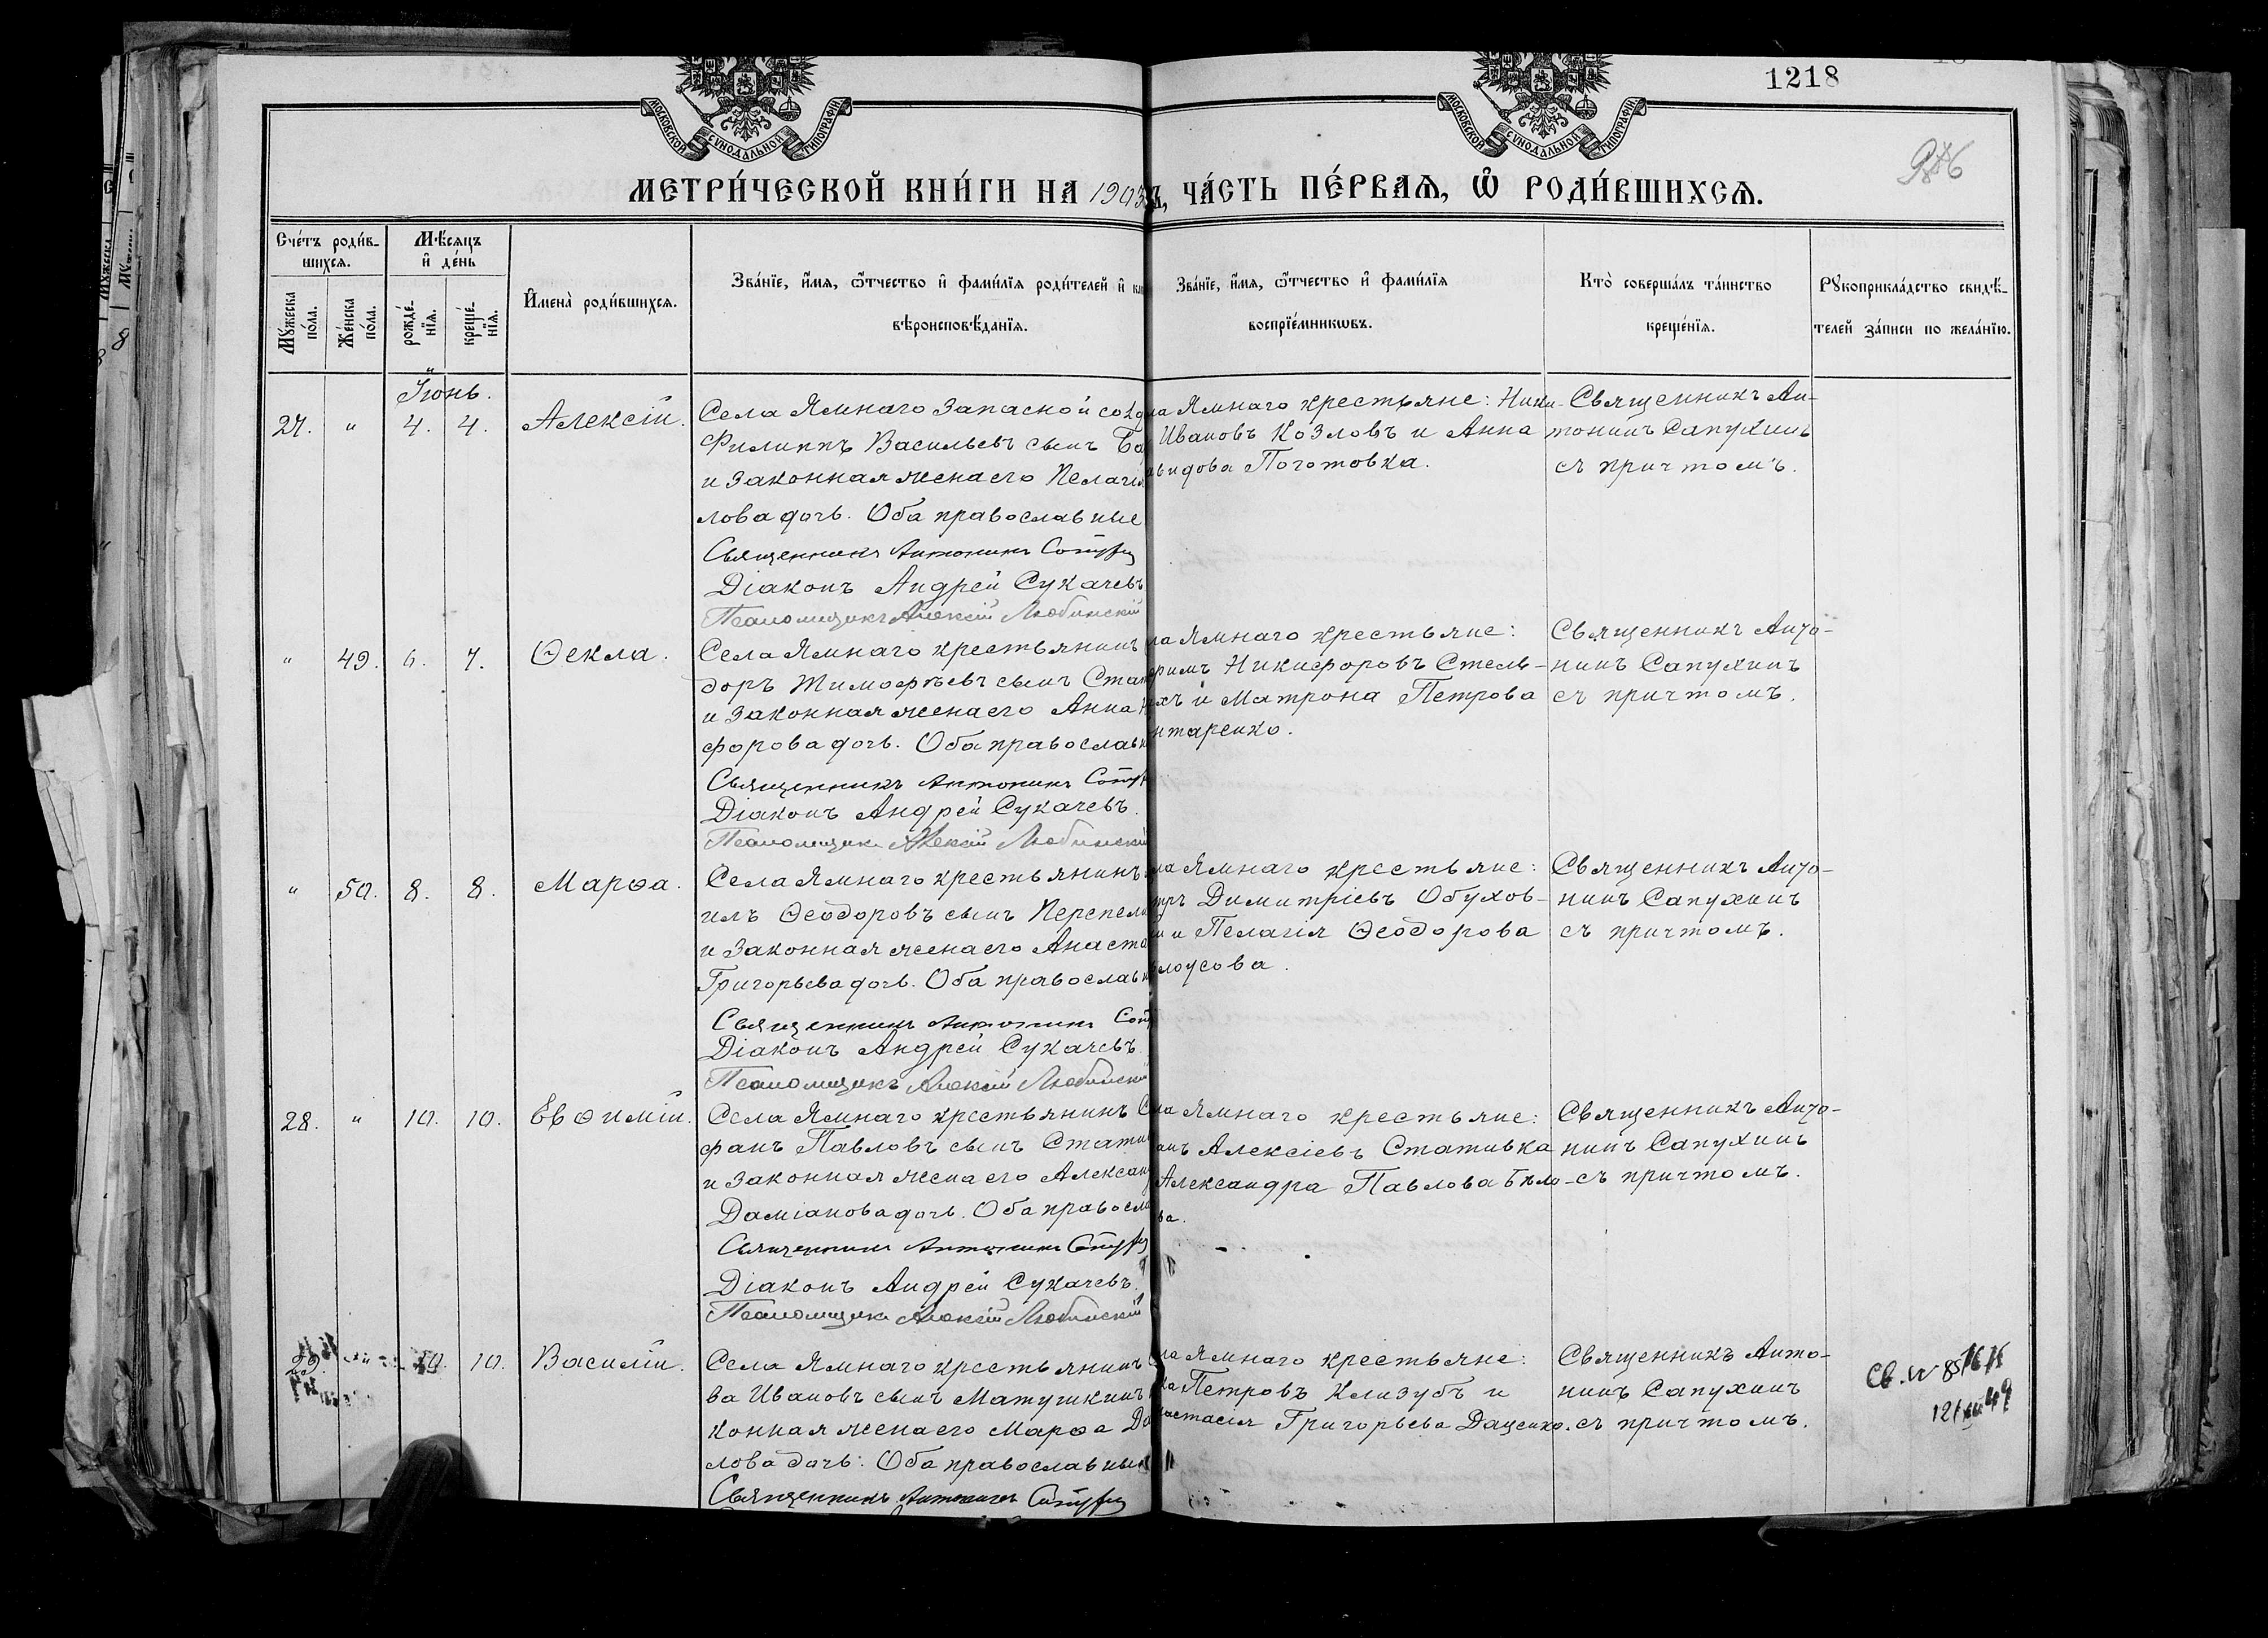 1218
МОСКОВСКОЙ СѴНОДАЛЬНОЙ ТИПОГРАФІИ
МОСКОВСКОЙ СѴНОДАЛЬНОЙ ТИПОГРАФІИ
МЕТРИ́ЧЕСКОЙ КНИ́ГИ НА 1903 ЧА́СТЬ ПЕ́РВАѦ, Ѡ РОДИ́ВШИХСѦ.
Сче́тъ роди́в-
шихсѧ.
Мѣ́сѧцъ
и҆ де́нь
Мꙋ́жеска по́ла.
Же́нска по́ла.
рожде́-
нїѧ.
креще́-
нїѧ.
И҆мена̀ роди́вшихсѧ.
Зва́нїе, и҆́мѧ, ѻ҆́тчество и҆ фами́лїѧ роди́телей и҆
вѣроисповѣ́данїѧ.
Зва́нїе, и҆́мѧ, ѻ҆́тчество и҆ фами́лїѧ
воспрїе́мникѡвъ.
Кто̀ соверша́лъ та́инство
креще́нїѧ.
Рꙋкоприкла́дство свидѣ́-
телей за́писи по жела́нїю.
Іюнь.
27. " 4. 4. Алексій.
Села Ямнаго запасной
Филиппъ Васильевъ сынъ
и законная жена его Пелагі
лова дочь. Оба православные
Священникъ Антонинъ
Діаконъ Андрей Сукачевъ
Псаломщикъ Алексій Любинскій
ла Ямнаго крестьяне: Ники-
Ивановъ Козловъ и Анна
видова Поготовка.
Священникъ Ан-
тонинъ Сапухинъ
съ причтомъ.
" 49. 6. 7. Ѳекла.
Села Ямнаго крестьянинъ
доръ Тимофѣевъ сынъ
и законная жена его Анна
форова дочь. Оба православн
Священникъ Антонинъ
Діаконъ Андрей Сукачевъ.
Псаломщикъ Алексій Любинскій
ла Ямнаго крестьяне:
фимъ Никифоровъ Стель-
хъ и Матрона Петрова
нтаренко.
Священникъ Анто-
нинъ Сапухинъ
съ причтомъ.
" 50. 8. 8. Марѳа.
Села Ямнаго крестьянинъ
илъ Ѳеодоровъ сынъ Перепели
и законная жена его Анаста
Григорьева дочь. Оба православн
Священникъ Антонинъ
Діаконъ Андрей Сукачевъ
Псаломщикъ Алексій Любинскій
ла Ямнаго крестьяне:
тръ Димитріевъ Обухов-
и Пелагія Ѳеодорова
лоусова.
Священникъ Анто-
нинъ Сапухинъ
съ причтомъ.
28. " 10. 10. Евѳимій.
Села Ямнаго крестьянинъ
фанъ Павловъ сынъ Статив
и законная жена его Александ
Даміанова дочь. Оба правосла
Священникъ Антонинъ
Діаконъ Андрей Сукачевъ.
Псаломщикъ Алексій Любинскій
ла Ямнаго крестьяне:
анъ Алексіевъ Стативка
Александра Павлова Бѣло-
ва.
Священникъ Анто-
нинъ Сапухинъ
съ причтомъ.
29. " 10. 10. Василій.
Села Ямнаго крестьянинъ
ва Ивановъ сынъ Матушкинъ
конная жена его Марѳа Да
лова дочь. Оба православные
Священникъ Антонинъ
ла Ямнаго крестьяне:
ка Петровъ Клизубъ и
настасія Григорьева Даценко.
Священникъ Анто-
нинъ Сапухинъ
съ причтомъ.